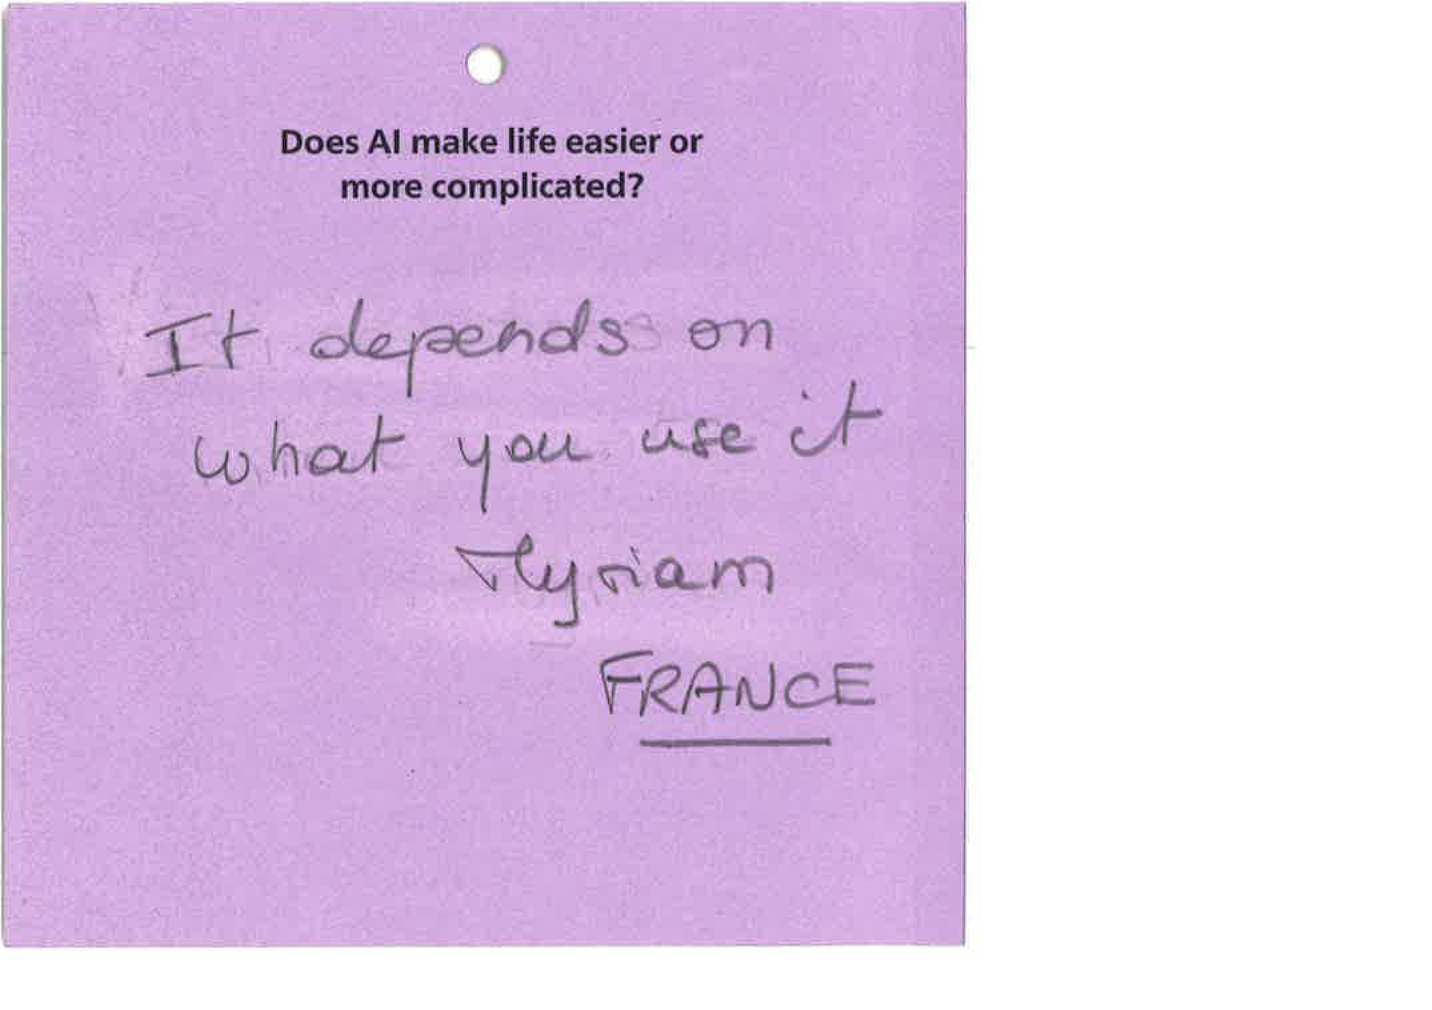 Does AI make life easier or
more complicated?
It depends on
what you use it
Myriam
FRANCE